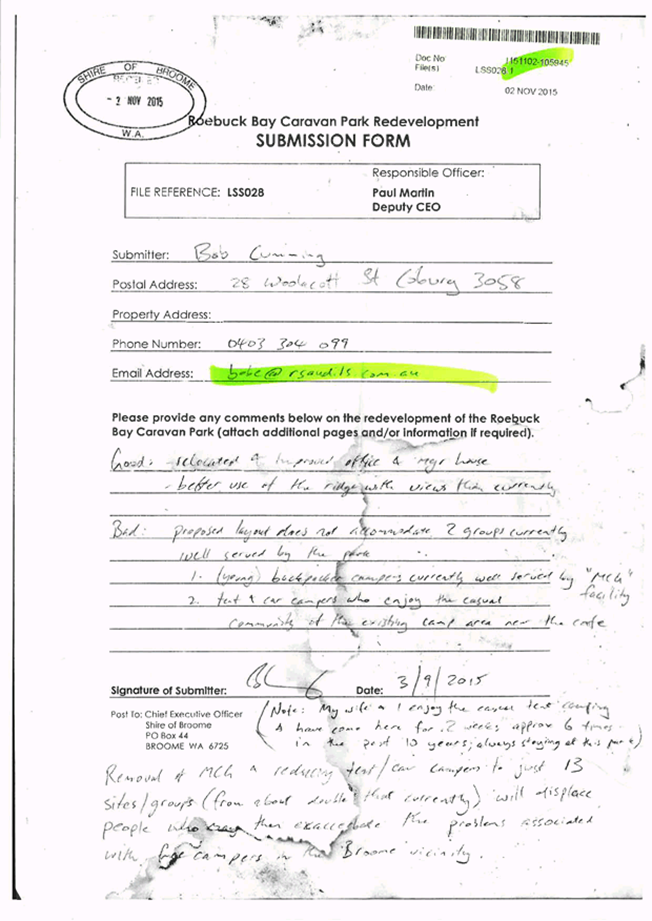 Doc No: I151102-105945
File(s) LSS028 1
Date: 02 NOV 2015
SHIRE OF BROOME
RECEIVED
- 2 NOV 2015
W.A.
Roebuck Bay Caravan Park Redevelopment
SUBMISSION FORM
FILE REFERENCE: LSS028
Responsible Officer:
Paul Martin
Deputy CEO
Submitter: Bob Cumming
Postal Address: 28 Woolacott St Coburg 3058
Property Address:
Phone Number: 0403 304 099
Email Address: bobc@rsaudits.com.au
Please provide any comments below on the redevelopment of the Roebuck
Bay Caravan Park (attach additional pages and/or information if required).
Good: - relocated & improved office & mgr house
- better use of the ridge with views than currently
Bad: proposed layout does not accommodate 2 groups currently
well served by the park
1. (young) backpacker campers currently well served by "MCG" facility
2. tent & car campers who enjoy the casual
community of the existing camp area near the cafe
Signature of Submitter: Date: 3/9/2015
Post To: Chief Executive Officer
Shire of Broome
PO Box 44
BROOME WA 6725
(Note: My wife & I enjoy the casual tent camping
& have come here for 2 weeks approx 6 times
in the past 10 years; always staying at this park)
Removal of MCG & reducing tent/car campers to just 13
sites/groups (from about double that currently) will displace
people who may then exaccerbate the problems associated
with free campers in the Broome vicinity.